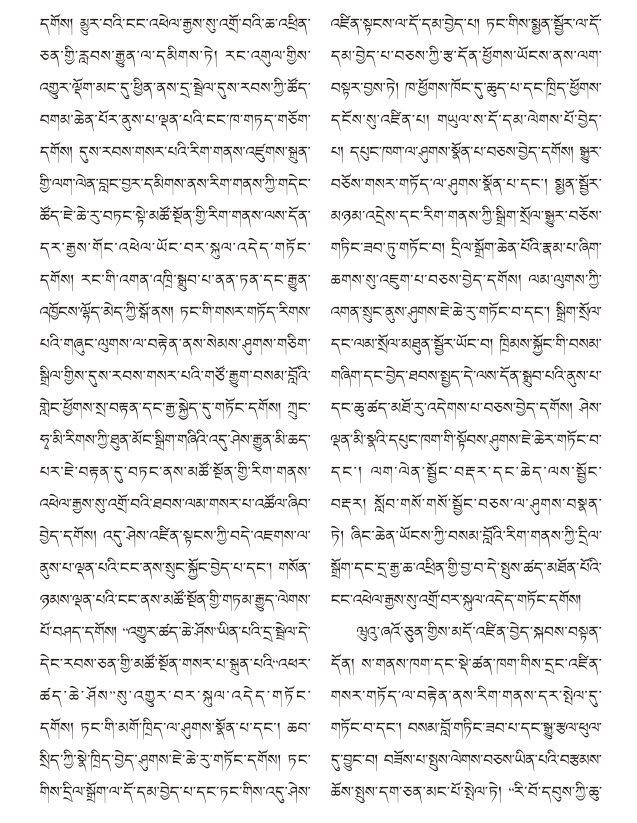 དགོས། མྱུར་བའི་ངང་འཕེལ་རྒྱས་སུ་འགྲོ་བའི་ཆ་འཕྲིན་
ཅན་གྱི་རླབས་རྒྱུན་ལ་དམིགས་ཏེ། རང་འགུལ་གྱིས་
འགྱུར་ལྡོག་མང་དུ་ཕྱིན་ནས་དྲ་སྦྲེལ་དུས་རབས་ཀྱི་ཚོད་
བགམ་ཆེན་པོར་ནུས་པ་ལྡན་པའི་ངང་ཁ་གཏད་གཅོག་
དགོས། དུས་རབས་གསར་པའི་རིག་གནས་འཛུགས་སྐྲུན་
གྱི་ལག་ལེན་བླང་བྱར་དམིགས་ནས་རིག་གནས་ཀྱི་གདེང་
ཚོད་ཇེ་ཆེ་རུ་བཏང་སྟེ་མཚོ་སྔོན་གྱི་རིག་གནས་ལས་དོན་
དར་རྒྱས་གོང་འཕེལ་ཡོང་བར་སྐུལ་འདེད་གཏོང་
དགོས། རང་གི་འགན་འཁྲི་སྒྲུབ་པ་ནན་ཏན་དང་རྒྱུན་
འཁྱོངས་ལྷོད་མེད་ཀྱི་སྒོ་ནས། ཏང་གི་གསར་གཏོད་རིགས་
པའི་གཞུང་ལུགས་ལ་བརྟེན་ནས་སེམས་ཤུགས་གཅིག་
སྒྲིལ་གྱིས་དུས་རབས་གསར་པའི་གཙོ་རྒྱུག་བསམ་བློའི་
གླེང་ཕྱོགས་སྲ་བརྟན་དང་རྒྱ་སྐྱེད་དུ་གཏོང་དགོས། ཀྲུང་
ཧྭ་མི་རིགས་ཀྱི་ཐུན་མོང་སྒྲིག་གཞིའི་འདུ་ཤེས་རྒྱུན་མི་ཆད་
པར་ཇེ་བརྟན་དུ་བཏང་ནས་མཚོ་སྔོན་གྱི་རིག་གནས་
འཕེལ་རྒྱས་སུ་འགྲོ་བའི་ཐབས་ལམ་གསར་པ་འཚོལ་ཞིབ་
བྱེད་དགོས། འདུ་ཤེས་འཛིན་སྟངས་ཀྱི་བདེ་འཇགས་ལ་
ནུས་པ་ལྡན་པའི་ངང་ནས་སྲུང་སྐྱོང་བྱེད་པ་དང་། གསོན་
ཉམས་ལྡན་པའི་ངང་ནས་མཚོ་སྔོན་གྱི་གཏམ་རྒྱུད་ལེགས་
པོ་བཤད་དགོས། “འགྱུར་ཚད་ཆེ་ཤོས་ཡིན་པའི་དྲ་སྦྲེལ་དེ་
དེང་རབས་ཅན་གྱི་མཚོ་སྔོན་གསར་པ་སྐྲུན་པའི“འཕར་
ཚད་ཆེ་ཤོས”སུ་འགྱུར་བར་སྐུལ་འདེད་གཏོང་
དགོས། ཏང་གི་མགོ་ཁྲིད་ལ་ཤུགས་སྣོན་པ་དང་། ཆབ་
སྲིད་ཀྱི་སྣེ་ཁྲིད་བྱེད་ཤུགས་ཇེ་ཆེ་རུ་གཏོང་དགོས། ཏང་
གིས་དྲིལ་སྒྲོག་ལ་དོ་དམ་བྱེད་པ་དང་ཏང་གིས་འདུ་ཤེས་
འཛིན་སྟངས་ལ་དོ་དམ་བྱེད་པ། ཏང་གིས་སྨྱན་སྦྱོར་ལ་དོ་
དམ་བྱེད་པ་བཅས་ཀྱི་རྩ་དོན་ཕྱོགས་ཡོངས་ནས་ལག་
བསྟར་བྱས་ཏེ། ཁ་ཕྱོགས་ཁོང་དུ་ཆུད་པ་དང་ཁྲིད་ཕྱོགས་
དངོས་སུ་འཛིན་པ། གཡུལ་ས་དོ་དམ་ལེགས་པོ་བྱེད་
པ། དཔུང་ཁག་ལ་ཤུགས་སྣོན་པ་བཅས་བྱེད་དགོས། སྒྱུར་
བཅོས་གསར་གཏོད་ལ་ཤུགས་སྣོན་པ་དང་། སྨྱན་སྦྱོར་
མཉམ་འདྲེས་དང་རིག་གནས་ཀྱི་སྒྲིག་སྲོལ་སྒྱུར་བཅོས་
གཏིང་ཟབ་ཏུ་གཏོང་བ། དྲིལ་སྒྲོག་ཆེན་པོའི་རྣམ་པ་ཞིག་
ཆགས་སུ་འཇུག་པ་བཅས་བྱེད་དགོས། ལམ་ལུགས་ཀྱི་
འགན་སྲུང་ནུས་ཤུགས་ཇེ་ཆེ་རུ་གཏོང་བ་དང་། སྒྲིག་སྲོལ་
དང་ལམ་སྲོལ་མཐུན་སྦྱོར་ཡོང་བ། ཁྲིམས་སྐྱོང་གི་བསམ་
གཞིག་དང་བྱེད་ཐབས་སྤྱད་དེ་ལས་དོན་སྒྲུབ་པའི་ནུས་པ་
དང་ཆུ་ཚད་མཐོ་རུ་འདེགས་པ་བཅས་བྱེད་དགོས། ཤེས་
ལྡན་མི་སྣའི་དཔུང་ཁག་གི་སྟོབས་ཤུགས་ཇེ་ཆེར་གཏོང་བ་
དང་། ལག་ལེན་སྦྱོང་བརྡར་དང་ཆེད་ལས་སྦྱོང་
བརྡར། སློབ་གསོ་གསོ་སྦྱོང་བཅས་ལ་ཤུགས་བསྣན་
ཏེ། ཞིང་ཆེན་ཡོངས་ཀྱི་བསམ་བློའི་རིག་གནས་ཀྱི་དྲིལ་
སྒྲོག་དང་དྲ་རྒྱ་ཆ་འཕྲིན་གྱི་བྱ་བ་དེ་སྤུས་ཚད་མཐོན་པོའི་
ངང་འཕེལ་རྒྱས་སུ་འགྲོ་བར་སྐུལ་འདེད་གཏོང་དགོས།
ཝུའུ་ཞའོ་ཅུན་གྱིས་མདོ་འཛིན་བྱེད་སྐབས་བསྟན་
དོན། ས་གནས་ཁག་དང་སྡེ་ཚན་ཁག་གིས་དྲང་འཛིན་
གསར་གཏོད་ལ་བརྟེན་ནས་རིག་གནས་དར་སྤེལ་དུ་
གཏོང་བ་དང་། བསམ་བློ་གཏིང་ཟབ་པ་དང་སྒྱུ་རྩལ་ཕུལ་
དུ་བྱུང་བ། བཟོས་པ་སྤུས་ལེགས་བཅས་ཡིན་པའི་བརྩམས་
ཆོས་སྤུས་དག་ཅན་མང་པོ་སྤེལ་ཏེ། “རི་བོ་དབུས་ཀྱི་ཆུ་